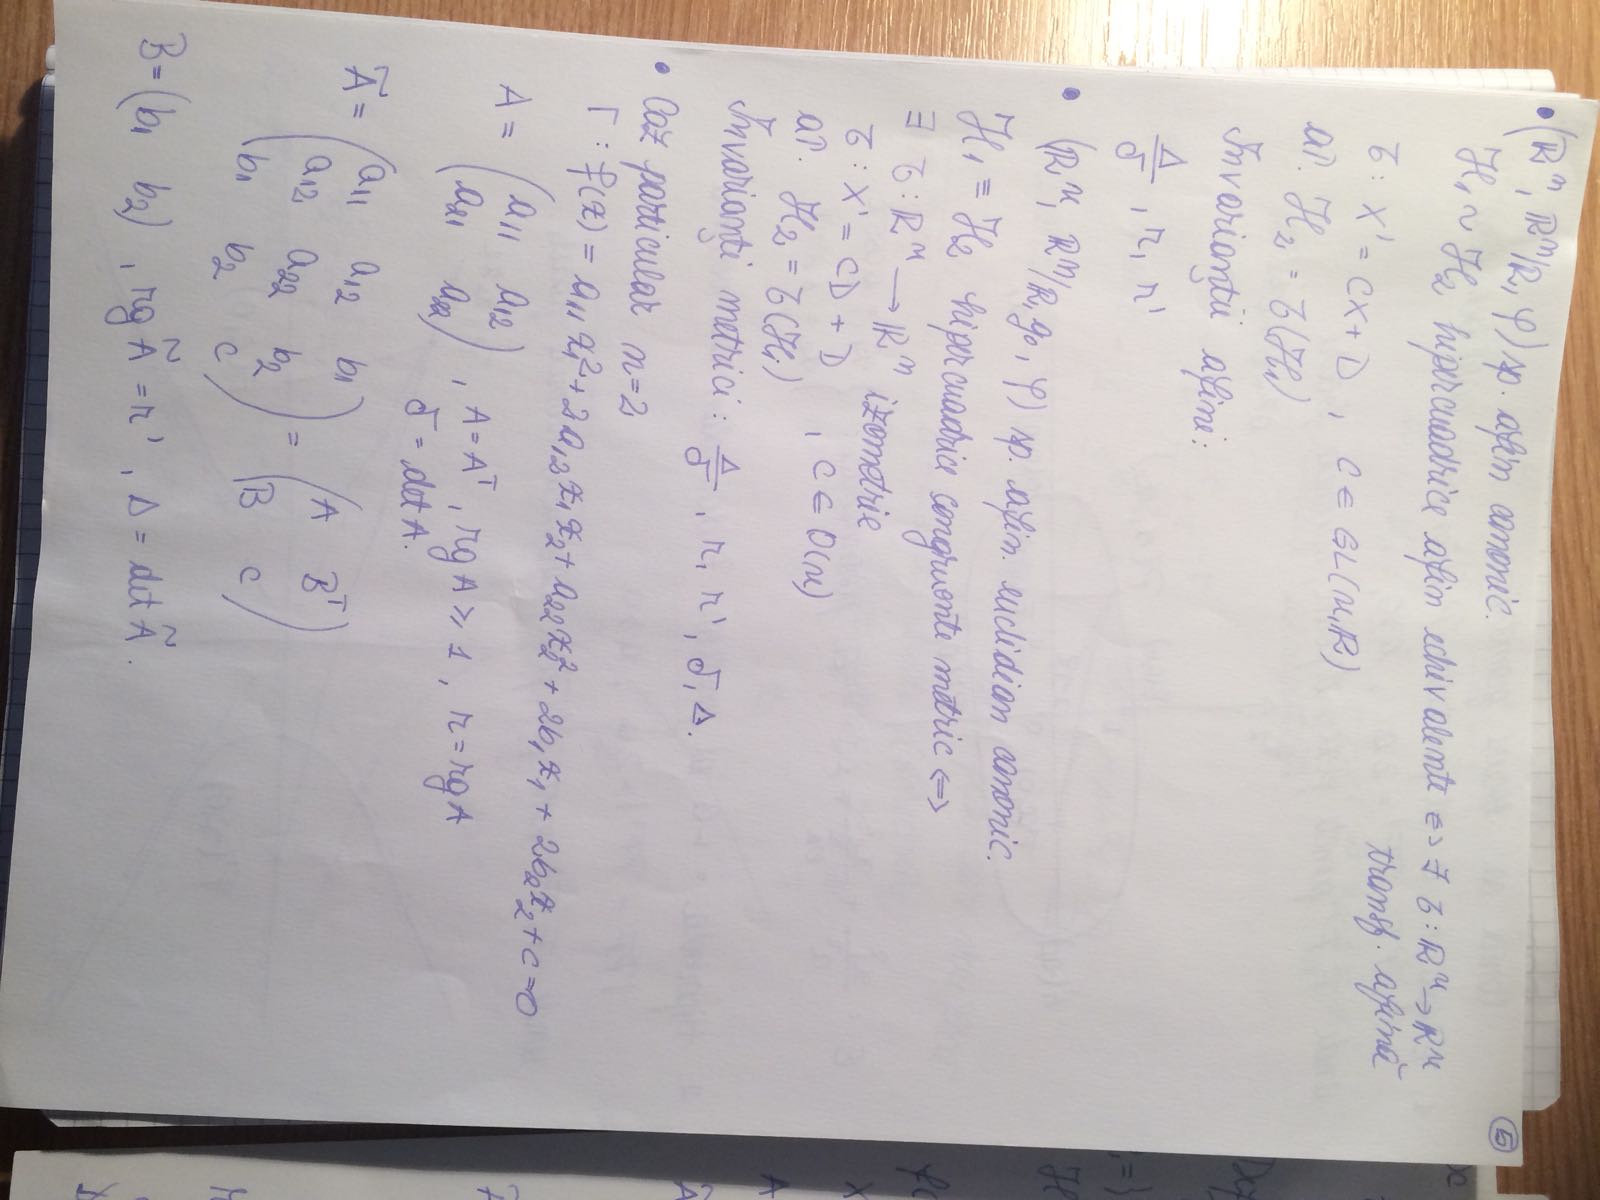 • (ℝⁿ, ℝⁿ/ℝ, φ) sp. afin canonic.
ℋ₁ ~ ℋ₂ hipercuadrice afin echivalente ⇔ ∃ τ: ℝⁿ → ℝⁿ
transf. afină
τ: X' = CX + D, C ∈ GL(n, ℝ)
aî. ℋ₂ = τ(ℋ₁)
Invarianții afini:
Δ/δ, r, r'
• (ℝⁿ, ℝⁿ/ℝ, g₀, φ) sp. afin. euclidian canonic.
ℋ₁ ≡ ℋ₂ hipercuadrice congruente metric ⇔
∃ τ: ℝⁿ → ℝⁿ izometrie
τ: X' = CD + D, C ∈ O(n)
aî. ℋ₂ = τ(ℋ₁)
Invarianți metrici: Δ/δ, r, r', δ, Δ.
• Caz particular n=2
Γ: f(x) = a₁₁x₁² + 2a₁₂x₁x₂ + a₂₂x₂² + 2b₁x₁ + 2b₂x₂ + c = 0
A = (a₁₁ a₁₂
a₂₁ a₂₂), A = Aᵀ, rg A ≥ 1, r = rg A
δ = det A.
Ã = (a₁₁ a₁₂ b₁
a₁₂ a₂₂ b₂
b₁ b₂ c) = (A Bᵀ
B c)
B = (b₁ b₂), rg Ã = r', Δ = det Ã.
5